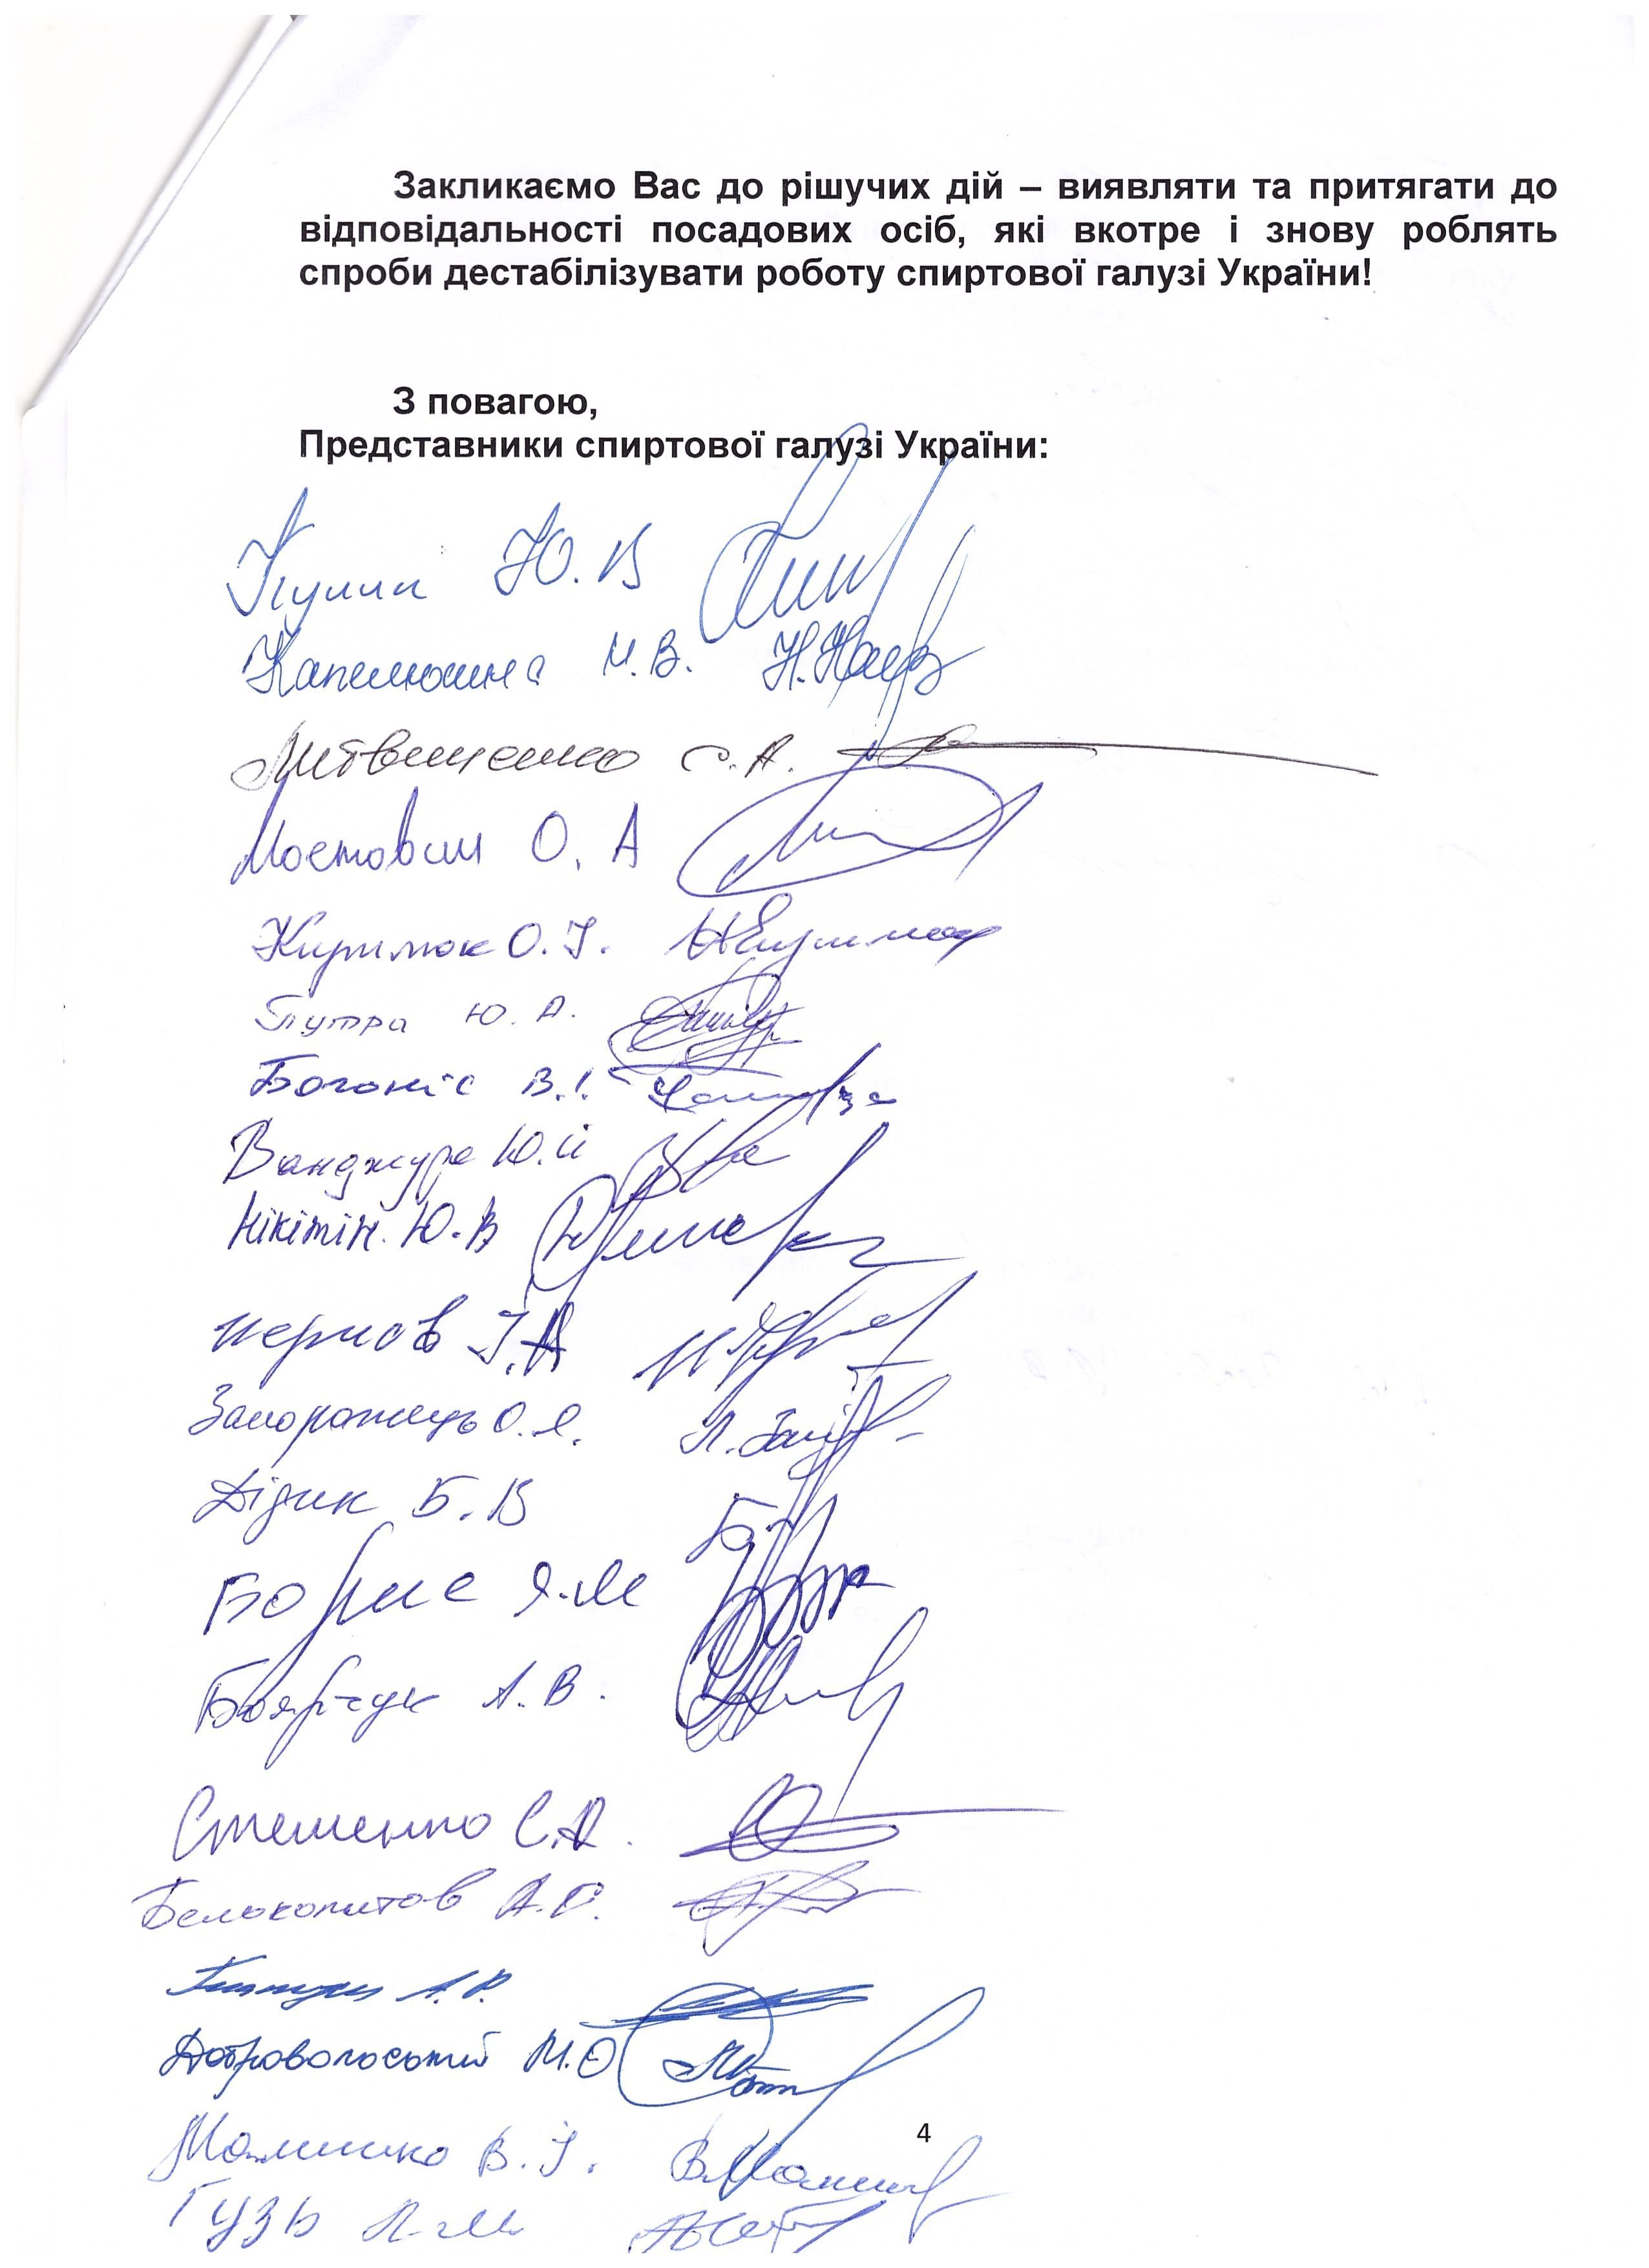 Закликаємо Вас до рішучих дій – виявляти та притягати до
відповідальності посадових осіб, які вкотре і знову роблять
спроби дестабілізувати роботу спиртової галузі України!
З повагою,
Представники спиртової галузі України:
Ю. В
Капелюшна Н. В.
Литвиненко С. А.
Мостовий О. А
О. І.
Путра Ю. А.
Богоніс В. І.
Ванджура Ю. Й
Нікітін. Ю. В
Чернов І. А
Запорожець О. Я.
Дідик Б. В
Борис Я. М
Боярчук А. В.
Стеменко С. А.
Белокопитов А. Г.
Добровольський М. О
4
Малишко В. І.
Гузь Л. М.